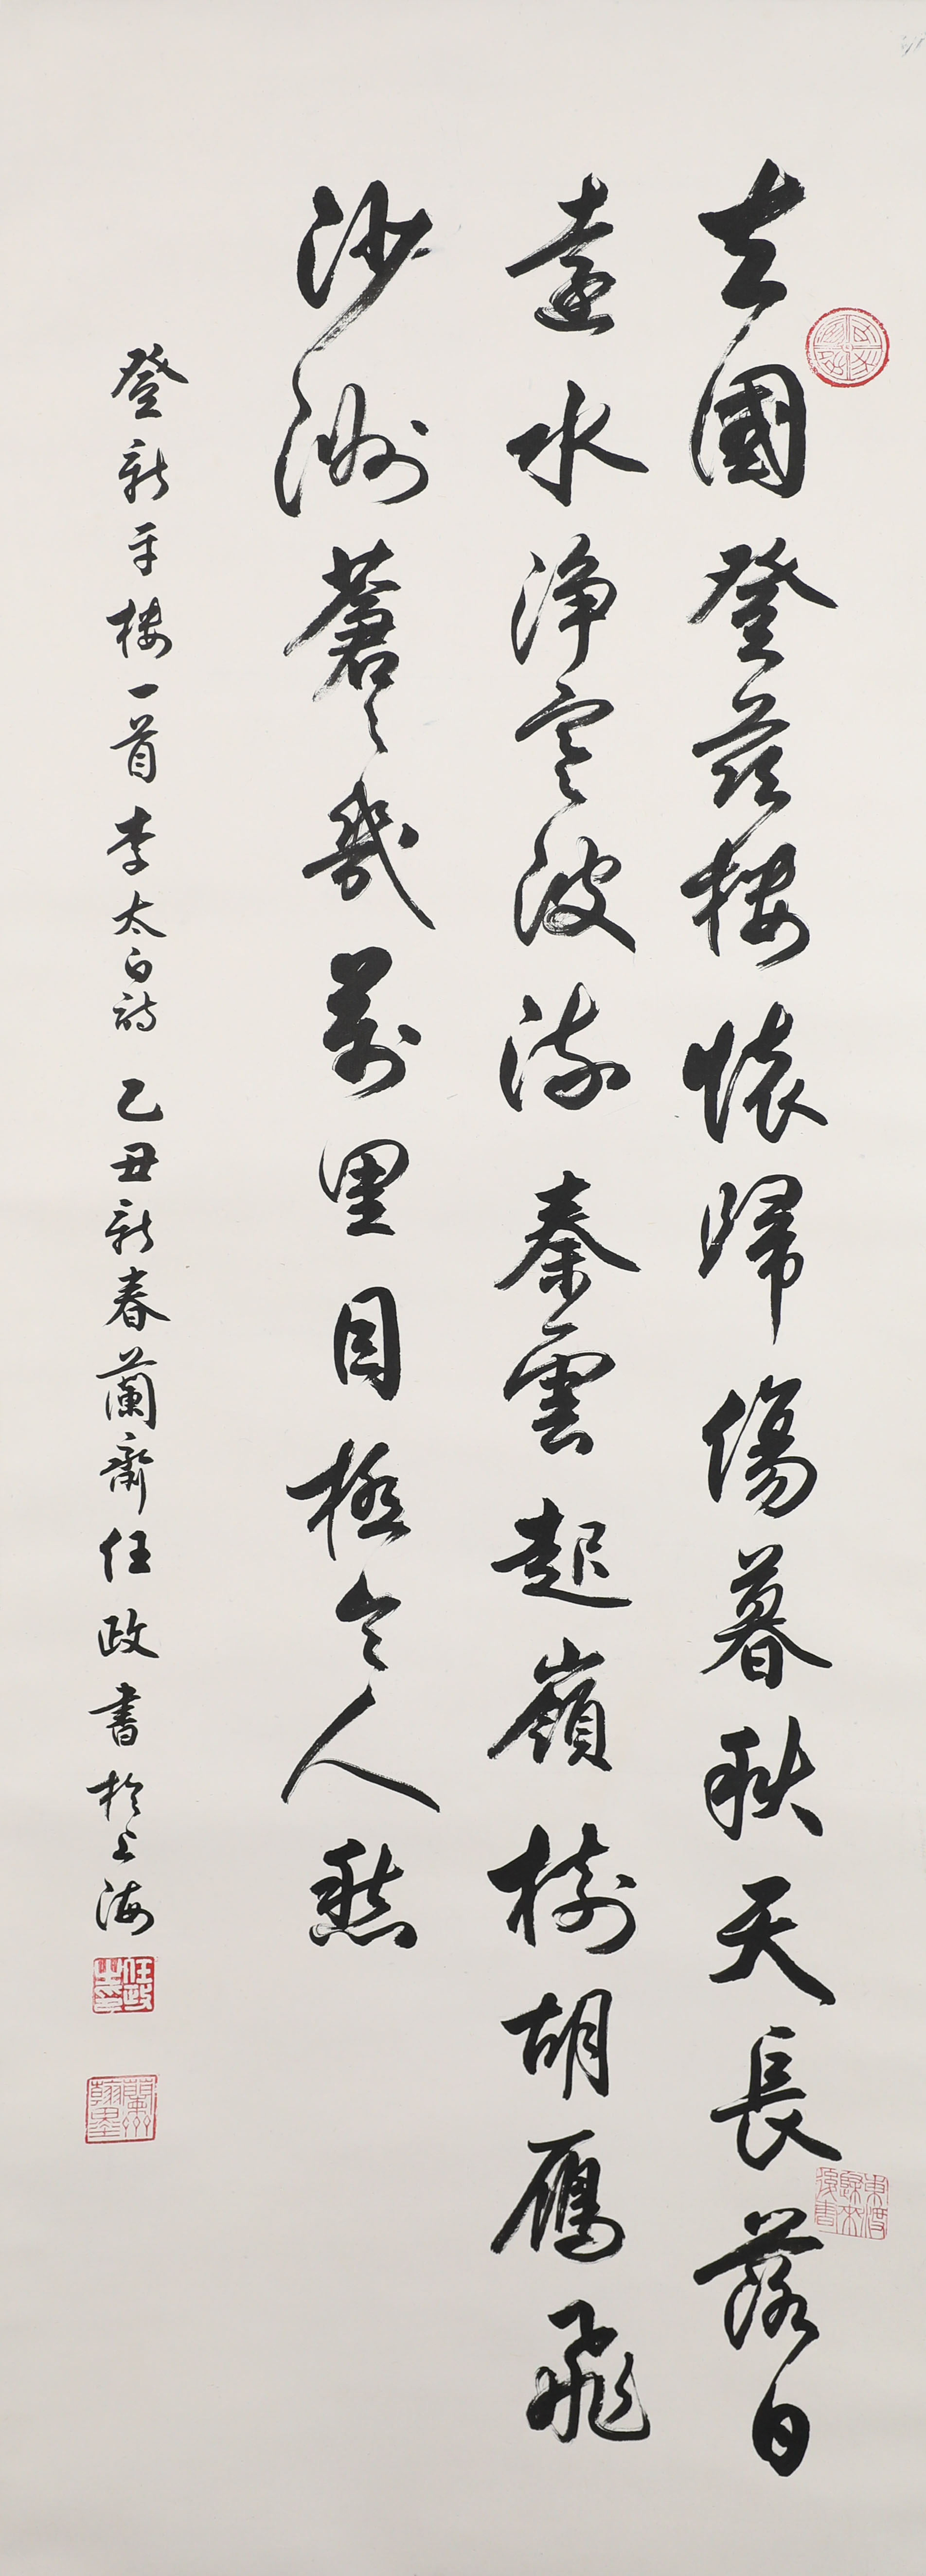 去國登茲樓懷歸傷暮秋天長落日
遠水淨寒波流秦雲起嶺樹胡雁飛
沙洲蒼々幾萬里目極令人愁
登新平樓一首李太白詩乙丑新春蘭齋任政書於上海
任政
東渡歸來後書